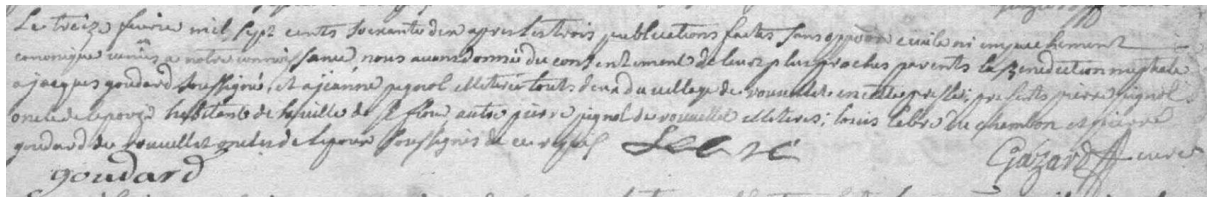 Le treize fevrier mil sept cents soixante dix apres les trois publications faites sans opposition civile ni empechement
canonique venus a notre connoissance, nous avons donné du consentement de leurs plus proches parents la Benediction nuptiale
a jacques goudard soussigné, et a jeanne pignol illeteres touts deux du village de vouvellet en cette presents pierre pignol
oncle de l'epouze habitants de la ville de st flour autre pierre pignol de vouvellet illeteres; louis lebre du chambon et pierre
goudard de vouvellet oncles de l'epoux soussignés de ce requis Lebre Gazard curé
goudard